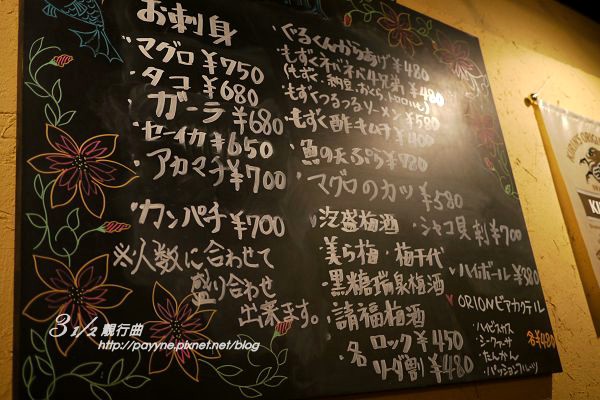 お刺身
・マグロ ¥750
・タコ ¥680
・ガーラ ¥680
・セーイカ ¥650
・アカマチ ¥700
・カンパチ ¥700
※人数に合わせて
盛り合わせ
出来ます。
・ぐるくんからあげ ¥480
・もずくネバネバ4兄弟 ¥480
(もずく、納豆、おくら、トロロ
・もずくつるつるソーメン ¥580
・もずく酢キムチ ¥400
・魚の天ぷら ¥780
・マグロのカツ ¥580
・シャコ貝刺 ¥700
・泡盛梅酒
・美ら梅・梅千代
・黒糖瑞泉梅酒
・請福梅酒
・各 ロック ¥450
ソーダ割 ¥480
ハイボール ¥380
ORIONビアカクテル
・ハイビスカス
・シークァーサー
・たんかん
・パッションフルーツ
各¥480
KIRIN'S ORIGIN
KI
3 1/2 靚行曲
http://payyne.pixnet.net/blog